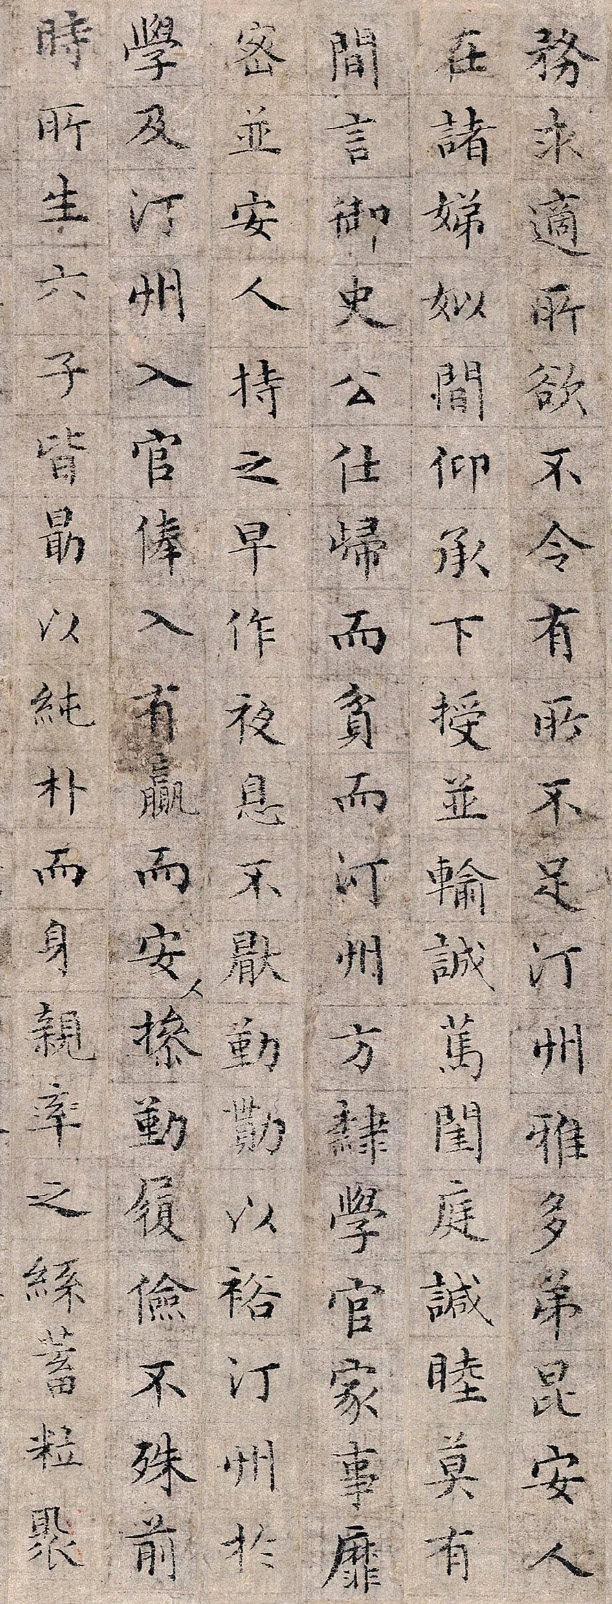 務求適所欲不令有所不足汀州雅多弟昆安人
在諸娣姒間仰承下授並輸誠篤閨庭諴睦莫有
間言御史公仕歸而貧而汀州方隸學官家事靡
密並安人持之早作夜息不厭勤勩以裕汀州於
學及汀州入官俸入有贏而安人操勤履儉不殊前
時所生六子皆勖以純朴而身親率之絲蓄粒聚